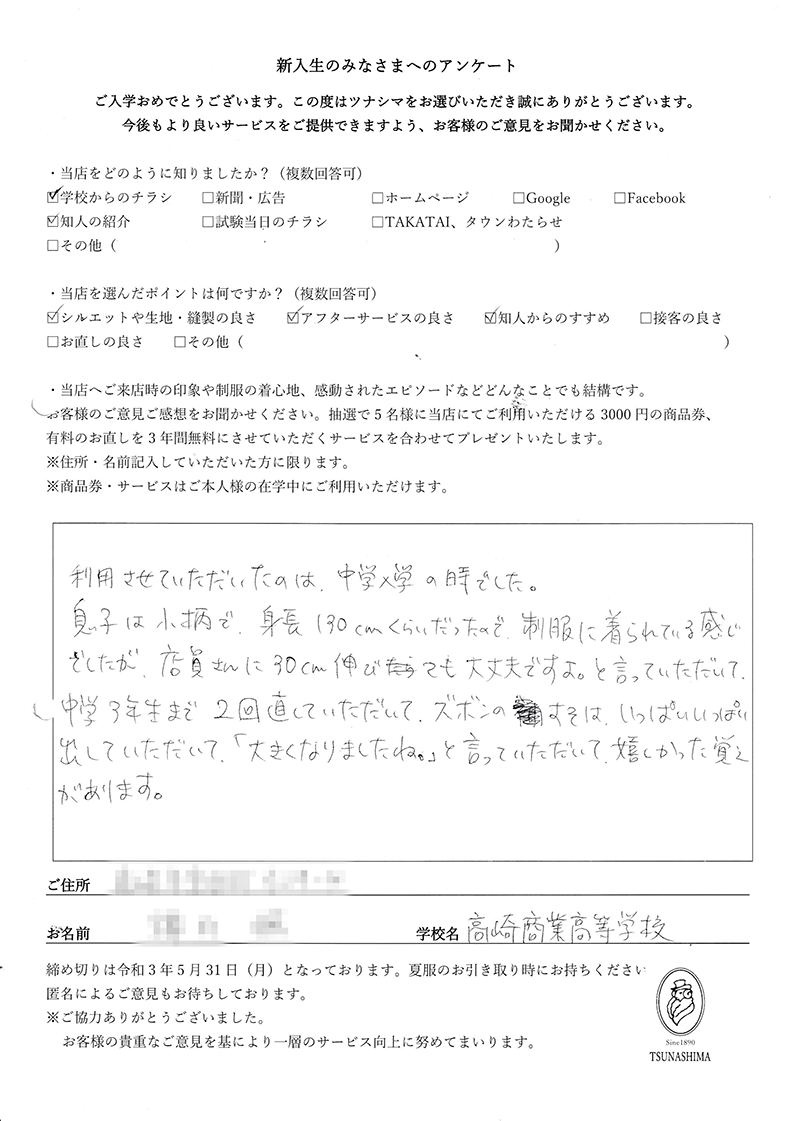 新入生のみなさまへのアンケート
ご入学おめでとうございます。この度はツナシマをお選びいただき誠にありがとうございます。
今後もより良いサービスをご提供できますよう、お客様のご意見をお聞かせください。
・当店をどのように知りましたか?(複数回答可)
☑学校からのチラシ □新聞・広告 □ホームページ □Google □Facebook
☑知人の紹介 □試験当日のチラシ □TAKATAI、タウンわたらせ
□その他( )
・当店を選んだポイントは何ですか?(複数回答可)
☑シルエットや生地・縫製の良さ ☑アフターサービスの良さ ☑知人からのすすめ □接客の良さ
□お直しの良さ □その他( )
・当店へご来店時の印象や制服の着心地、感動されたエピソードなどどんなことでも結構です。
お客様のご意見ご感想をお聞かせください。抽選で5名様に当店にてご利用いただける3000円の商品券、
有料のお直しを3年間無料にさせていただくサービスを合わせてプレゼントいたします。
※住所・名前記入していただいた方に限ります。
※商品券・サービスはご本人様の在学中にご利用いただけます。
利用させていただいたのは、中学入学の時でした。
息子は小柄で、身長130cmくらいだったので、制服に着られている感じ
でしたが、店員さんに30cm伸びても大丈夫ですよ。と言っていただいて、
中学3年生まで2回直していただいて、ズボンのすそは、いっぱいいっぱい
出していただいて、「大きくなりましたね。」と言っていただいて、嬉しかった覚え
があります。
ご住所
お名前 学校名 高崎商業高等学校
締め切りは令和3年5月31日(月)となっております。夏服のお引き取り時にお持ちください
匿名によるご意見もお待ちしております。
※ご協力ありがとうございました。
お客様の貴重なご意見を基により一層のサービス向上に努めてまいります。
Sinc1890
TSUNASHIMA